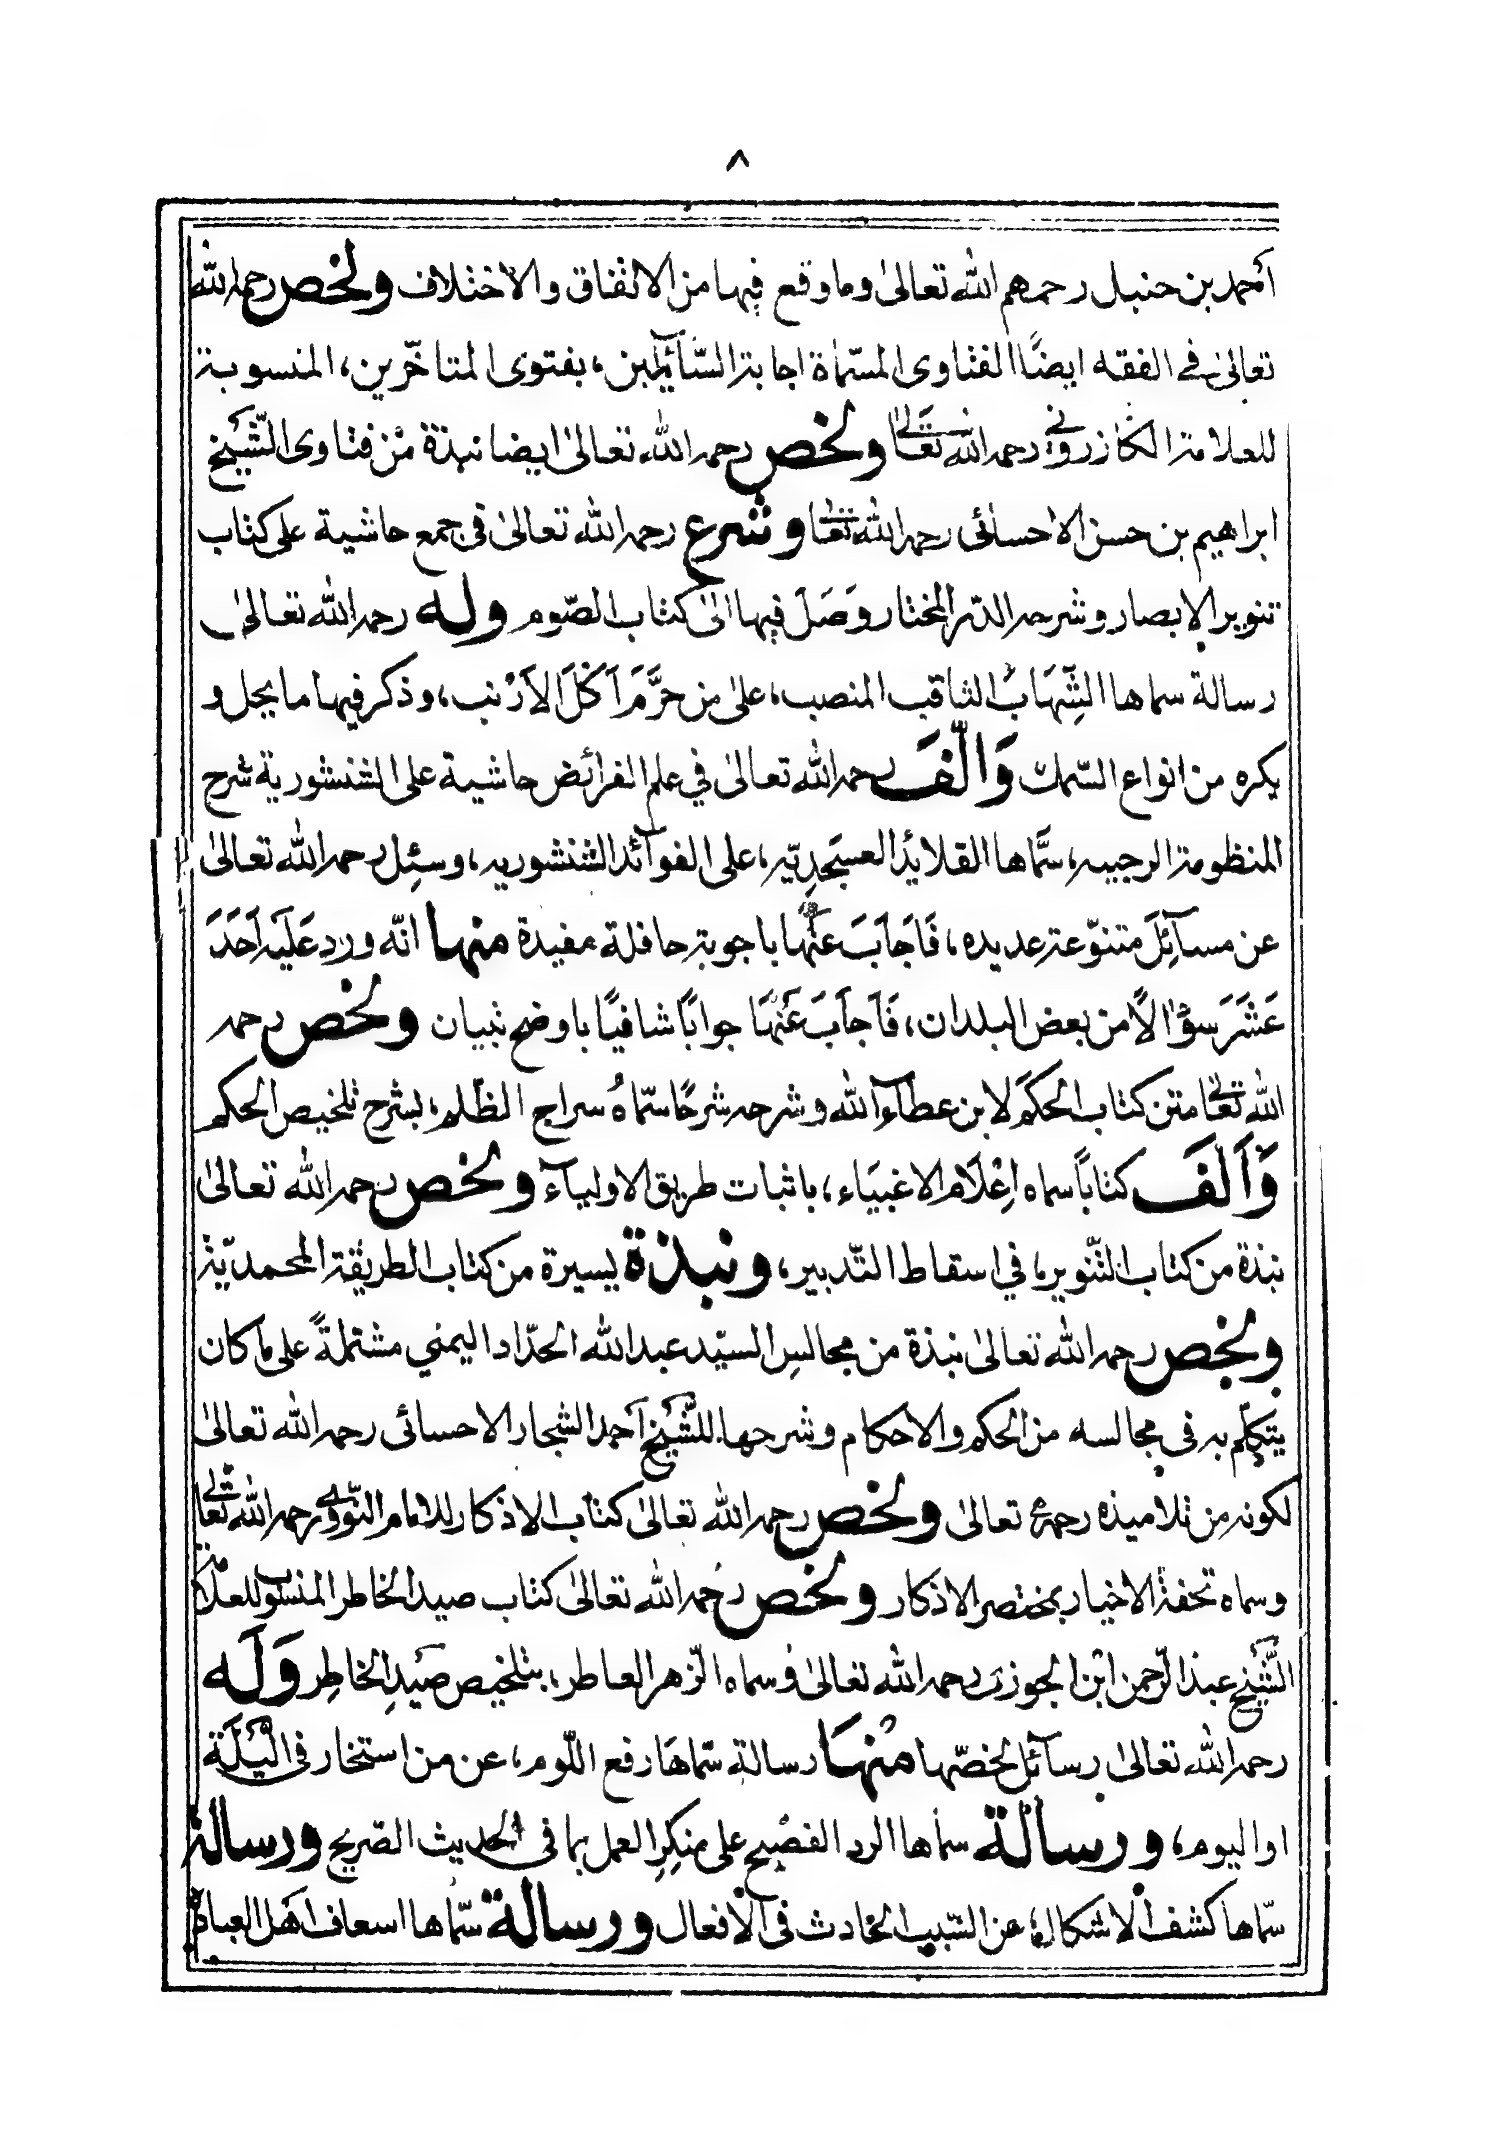 ٨
أحمد بن حنبل رحمهم الله تعالىٰ وما وقع فيها من الاتفاق والاختلاف ولخص رحمه الله
تعالىٰ فى الفقه ايضًا الفتاوى المسمّاة اجابة السَّآئلين، بفتوى المتأخّرين، المنسوبة
للعلامة الكازرونى رحمه الله تعالىٰ ولخص رحمه الله تعالىٰ ايضا نبذة من فتاوى الشَّيْخ
ابراهيم بن حسن الاحسائى رحمه الله تعالىٰ وشرع رحمه الله تعالىٰ فى جمع حاشية على كتاب
تنوير الابصار وشرحه الدّر المختار وَصَلَ فيها الىٰ كتاب الصّوم وله رحمه الله تعالىٰ
رسالة سماها الشِّهَابُ الثاقب المنصب، علىٰ من حرَّمَ أكْلَ الأرْنب، وذكر فيها ما يحل و
يكره من انواع السّمك وَالَّفَ رحمه الله تعالىٰ في علم الفرائض حاشية على الشنشورية شرح
المنظومة الرحبيه، سمَّاها القلايدُ العسجَدِيّه، على الفوآئد الشنشوريه، وسئِل رحمه الله تعالىٰ
عن مسآئِلَ متنوّعة عديده، فَأجَابَ عَنْها باجوبة حافلة مفيدة منها انّه ورد عَليه أحَدَ
عَشَرَ سؤالاً من بعض البلدان، فَأجَابَ عَنْهَا جوابًا شافيًا باوضح تبيان ولخص رحمه
الله تعالىٰ متن كتاب الحكَم لابن عطآء الله وشرحه شرحًا سمّاهُ سراج الظّلم، بشرح تلخيص الحكم
وَأَلَّفَ كتابًا سماه إعْلَام الاغبيَاء، باثبات طريق الاوليآء ولخص رحمه الله تعالىٰ
نبذة من كتاب التّنوير، في اسقاط التّدبير، ونبذة يسيرة من كتاب الطريقة المحمديّة
ولخص رحمه الله تعالىٰ نبذة من مجالسِ السيّد عبد الله الحدّاد اليمني مشتملةً على ما كان
يتكلّم به فى مجالسه من الحكم والاحكام وشرحها للشَّيْخ أحمد الشجار الاحسائى رحمه الله تعالىٰ
لكونه من تلاميذه رحمهٗ تعالىٰ ولخص رحمه الله تعالىٰ كتاب الاذكار للامام النّووى رحمه الله تعالىٰ
وسماه تحفة الاخيار بمختصر الاذكار ولخص رحمه الله تعالىٰ كتاب صيد الخاطر المنسوب للعلامة
الشَّيْخ عبد الرّحمن ابْن الجوزى رحمه الله تعالىٰ وسماه الزّهر العاطر، بتلخيص صَيْدِ الخاطِر وَلَه
رحمه الله تعالىٰ رسآئل لخصّها مِنْهَا رسالة سمّاهَا رفع اللّوم، عن من استخار فى اللَّيْلَة
او اليوم، ورسالة سماها الرد الفصْيح على منكِرِ العمل بما فى الحديث الصّريح ورسالة
سمّاها كشف الاشكال، عن السّبب الحادث فى الأفعال ورسالة سمّاها اسعاف اهل العبادة